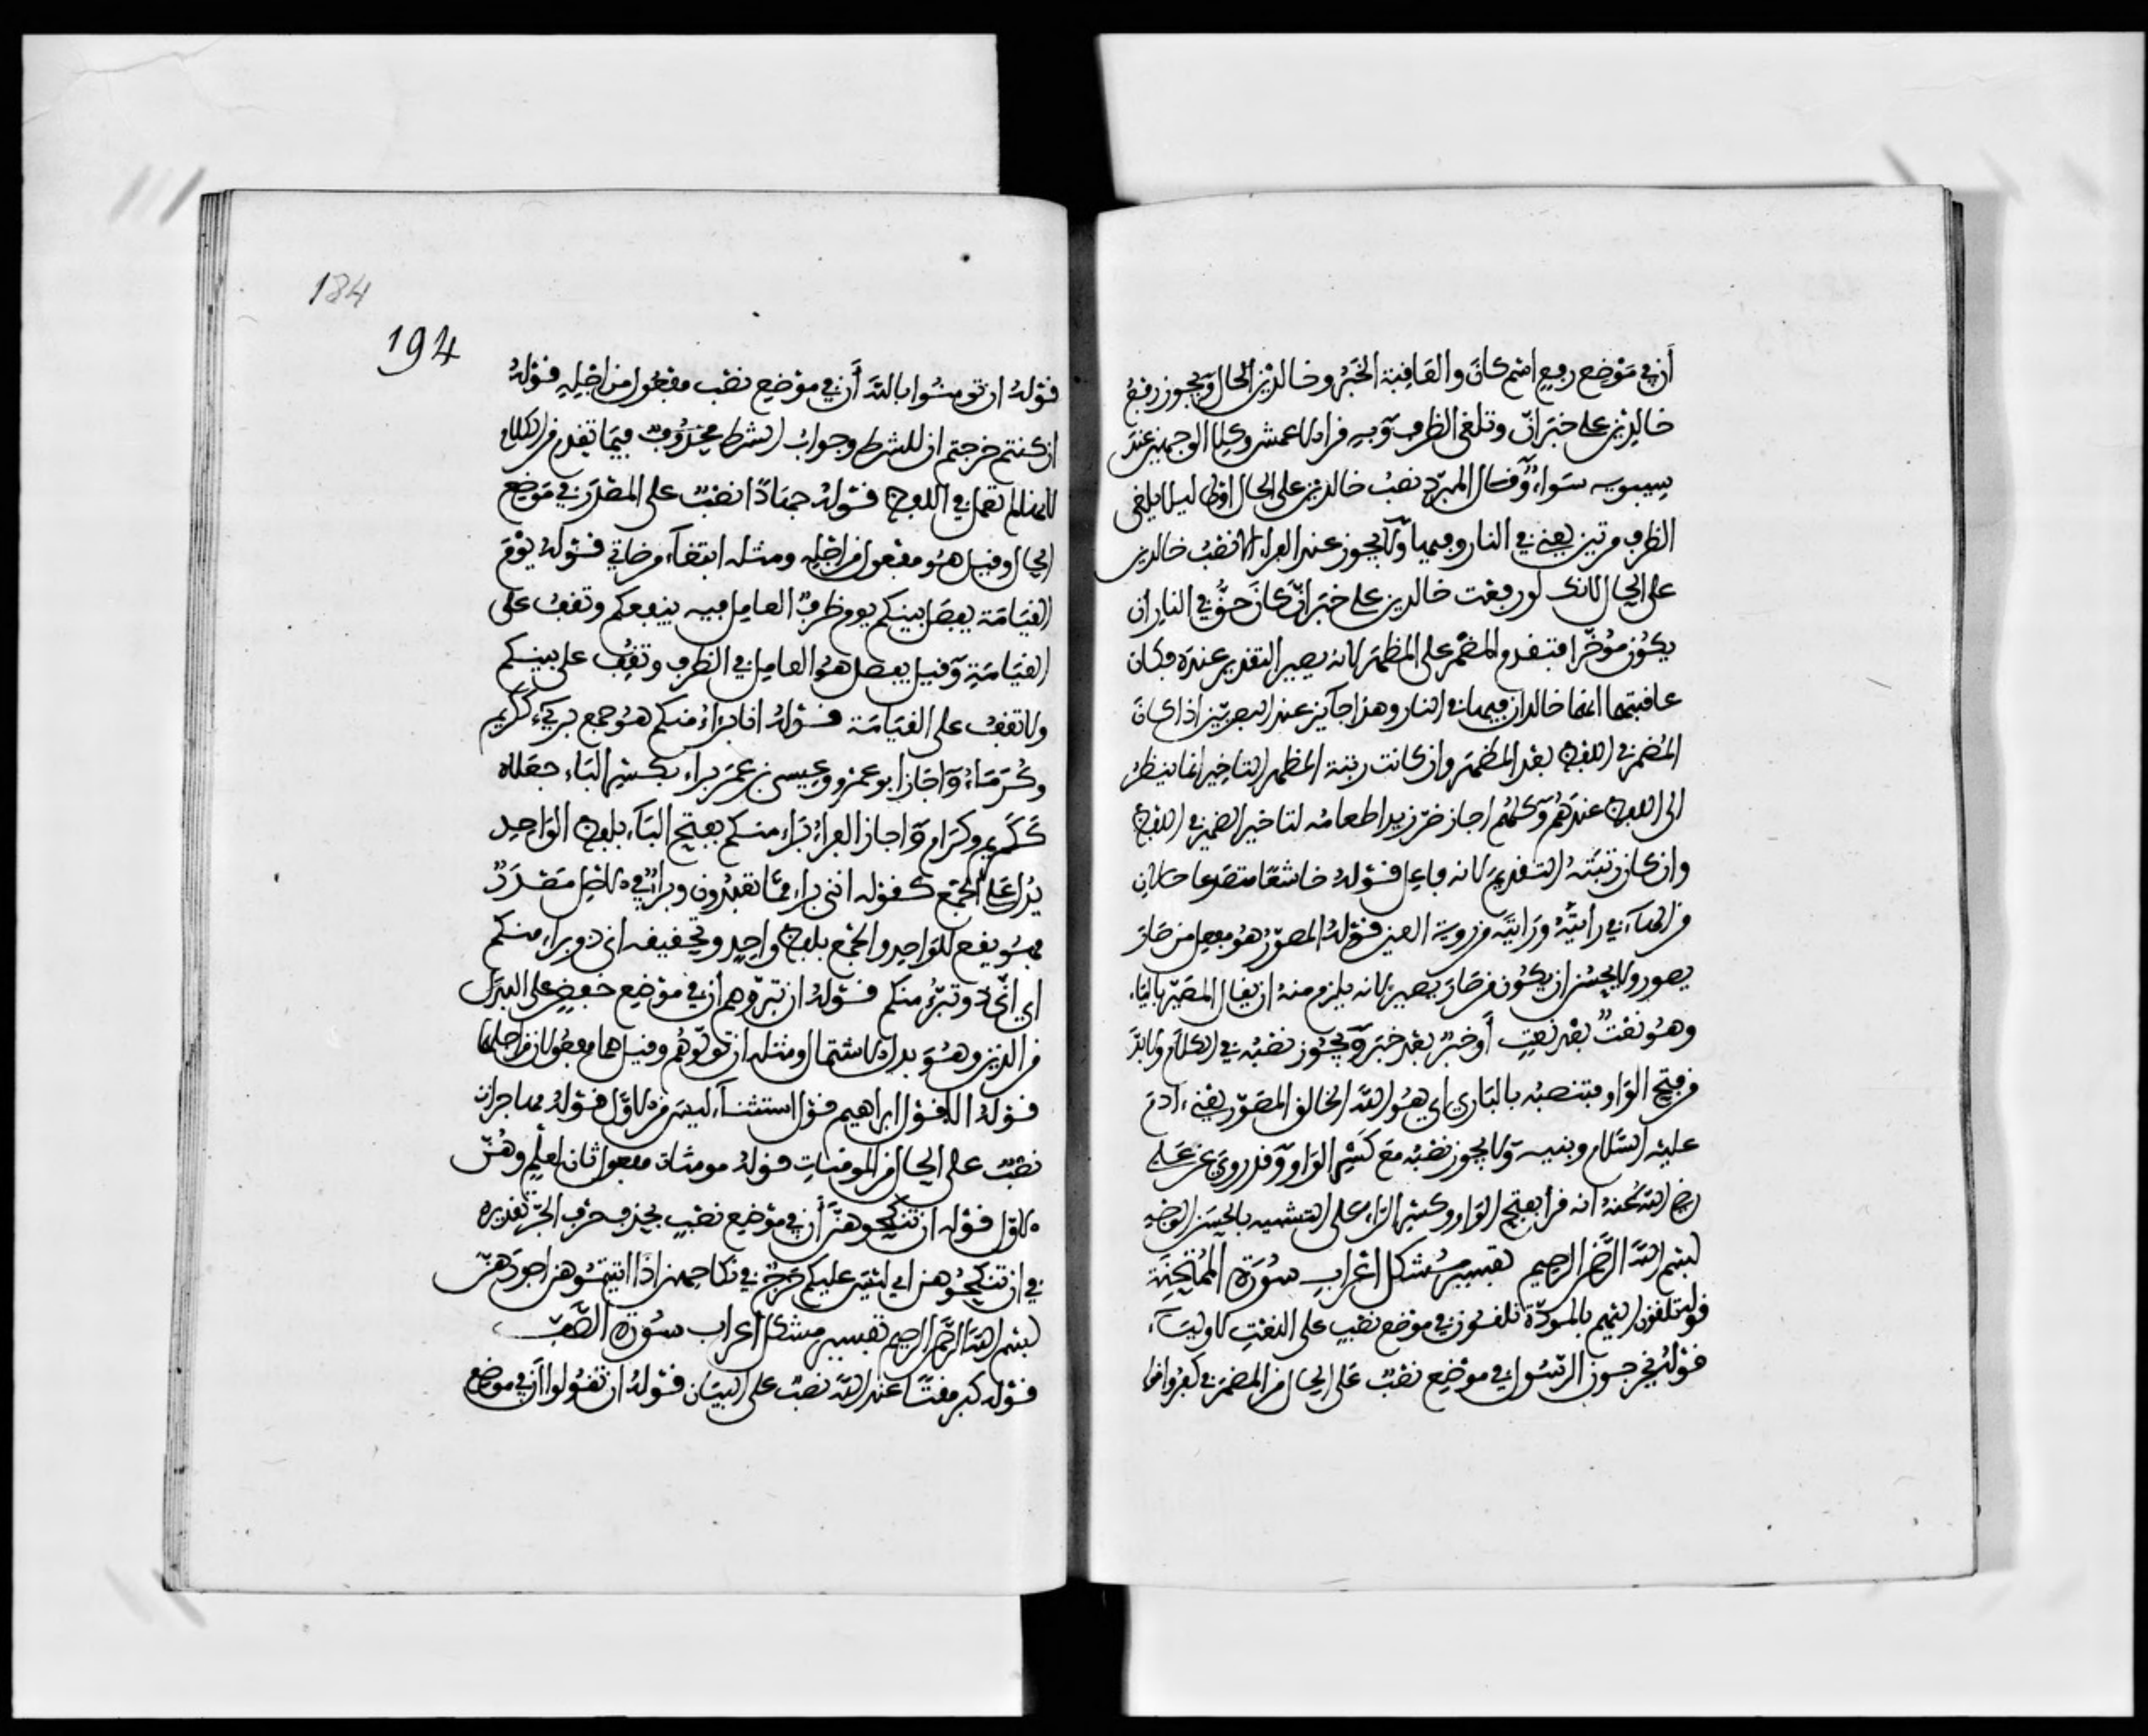 أن في موضع رفع اسم كان والعاقبة الخبر وخالدين الحال ويجوز رفع
خالدين على خبر ان وتلغى الظرف وبه قرا الاعمش وكلا الوجهين عند
سيبويه سواء وقال المبرد نصب خالدين على الحال اولى ليلا يلغى
الظرف مرتين يعني في النار وفيها ولا يجوز عند الفراء الا نصب خالدين
على الحال لانك لو رفعت خالدين على خبر ان كان حق في النار ان
يكون موخرا فتقدم المضمر على المظهر لانه يصير التقدير عنده فكان
عاقبتهما انهما خالدان فيها في النار وهذا جايز عند البصريين اذا كان
المضمر في اللفظ بعد المظهر وان كانت رتبة المظهر التاخير انما ينظر
الى اللفظ عندهم وكلهم اجاز ضر زيدا طعامه لتاخير الضمير في اللفظ
وان كان رتبته التقديم لانه فاعل قوله خاشعا متصدعا حالان
من الهاء في رأيته ورأيته من روية العين قوله المصور هو مفعل من صار
يصور ولا يحسن ان يكون من صار يصير لانه يلزم منه ان يقال المصير بالياء
وهو نعت بعد نعت أو خبر بعد خبر ويجوز نصبه في الكلام ولا بد
من فتح الواو فتنصبه بالباري اي هو الله الخالق المصور يعني ءادم
عليه السلام وبنيه ولا يجوز نصبه مع كسر الواو وقد روي عن علي
رضي الله عنه انه قرا بفتح الواو وكسر الراء على التشبيه بالحسن الوجه
بسم الله الرحمن الرحيم تفسير مشكل اعراب سورة الممتحنة
قوله تلقون اليهم بالمودة تلقون في موضع نصب على النعت لاولياء
قوله يخرجون الرسول في موضع نصب على الحال من المضمر في كفروا
184
194
قوله ان تومنوا بالله أن في موضع نصب مفعول من اجله قوله
ان كنتم خرجتم ان للشرط وجواب الشرط محذوف فيما تقدم من الكلام
لانها لم تعمل في اللفظ قوله جهادا نصب على المصدر في موضع
الحال وقيل هو مفعول من اجله ومثله ابتغاء مرضاتي قوله يوم
القيامة يفصل بينكم يوم ظرف العامل فيه ينفعكم وتقف على
القيامة وقيل يفصل هو العامل في الظرف وتقف على بينكم
ولا تقف على القيامة قوله انا برءاؤ منكم هو جمع بريء ككريم
وكرماء واجاز ابو عمرو وعيسى بن عمر براء بكسر الباء جعلاه
ككريم وكرام واجاز الفراء براء منكم بفتح الباء بلفظ الواحد
يدل على الجمع كقوله انني براء مما تعبدون وبراء في الاصل مصدر
فهو يقع للواحد والجمع بلفظ واحد وتحقيقه اني ذو براء منكم
اي اني ذو تبرء منكم قوله ان تبروهم أن في موضع خفض على البدل
من الذين وهو بدل الاشتمال ومثله ان تولوهم وقيل هما مفعولان من اجلهما
قوله الا قول ابراهيم قول استثناء ليس من الاول قوله مهاجرات
نصب على الحال من المومنات قوله مومنات مفعول ثان لعلم وهن
الاول قوله ان تنكحوهن أن في موضع نصب بحذف حرف الجر تقديره
في ان تنكحوهن اي ليس عليكم حرج في نكاحهن اذا اتيتموهن اجورهن
بسم الله الرحمن الرحيم تفسير مشكل اعراب سورة الصف
قوله كبر مقتا عند الله نصب على البيان قوله ان تقولوا أن في موضع